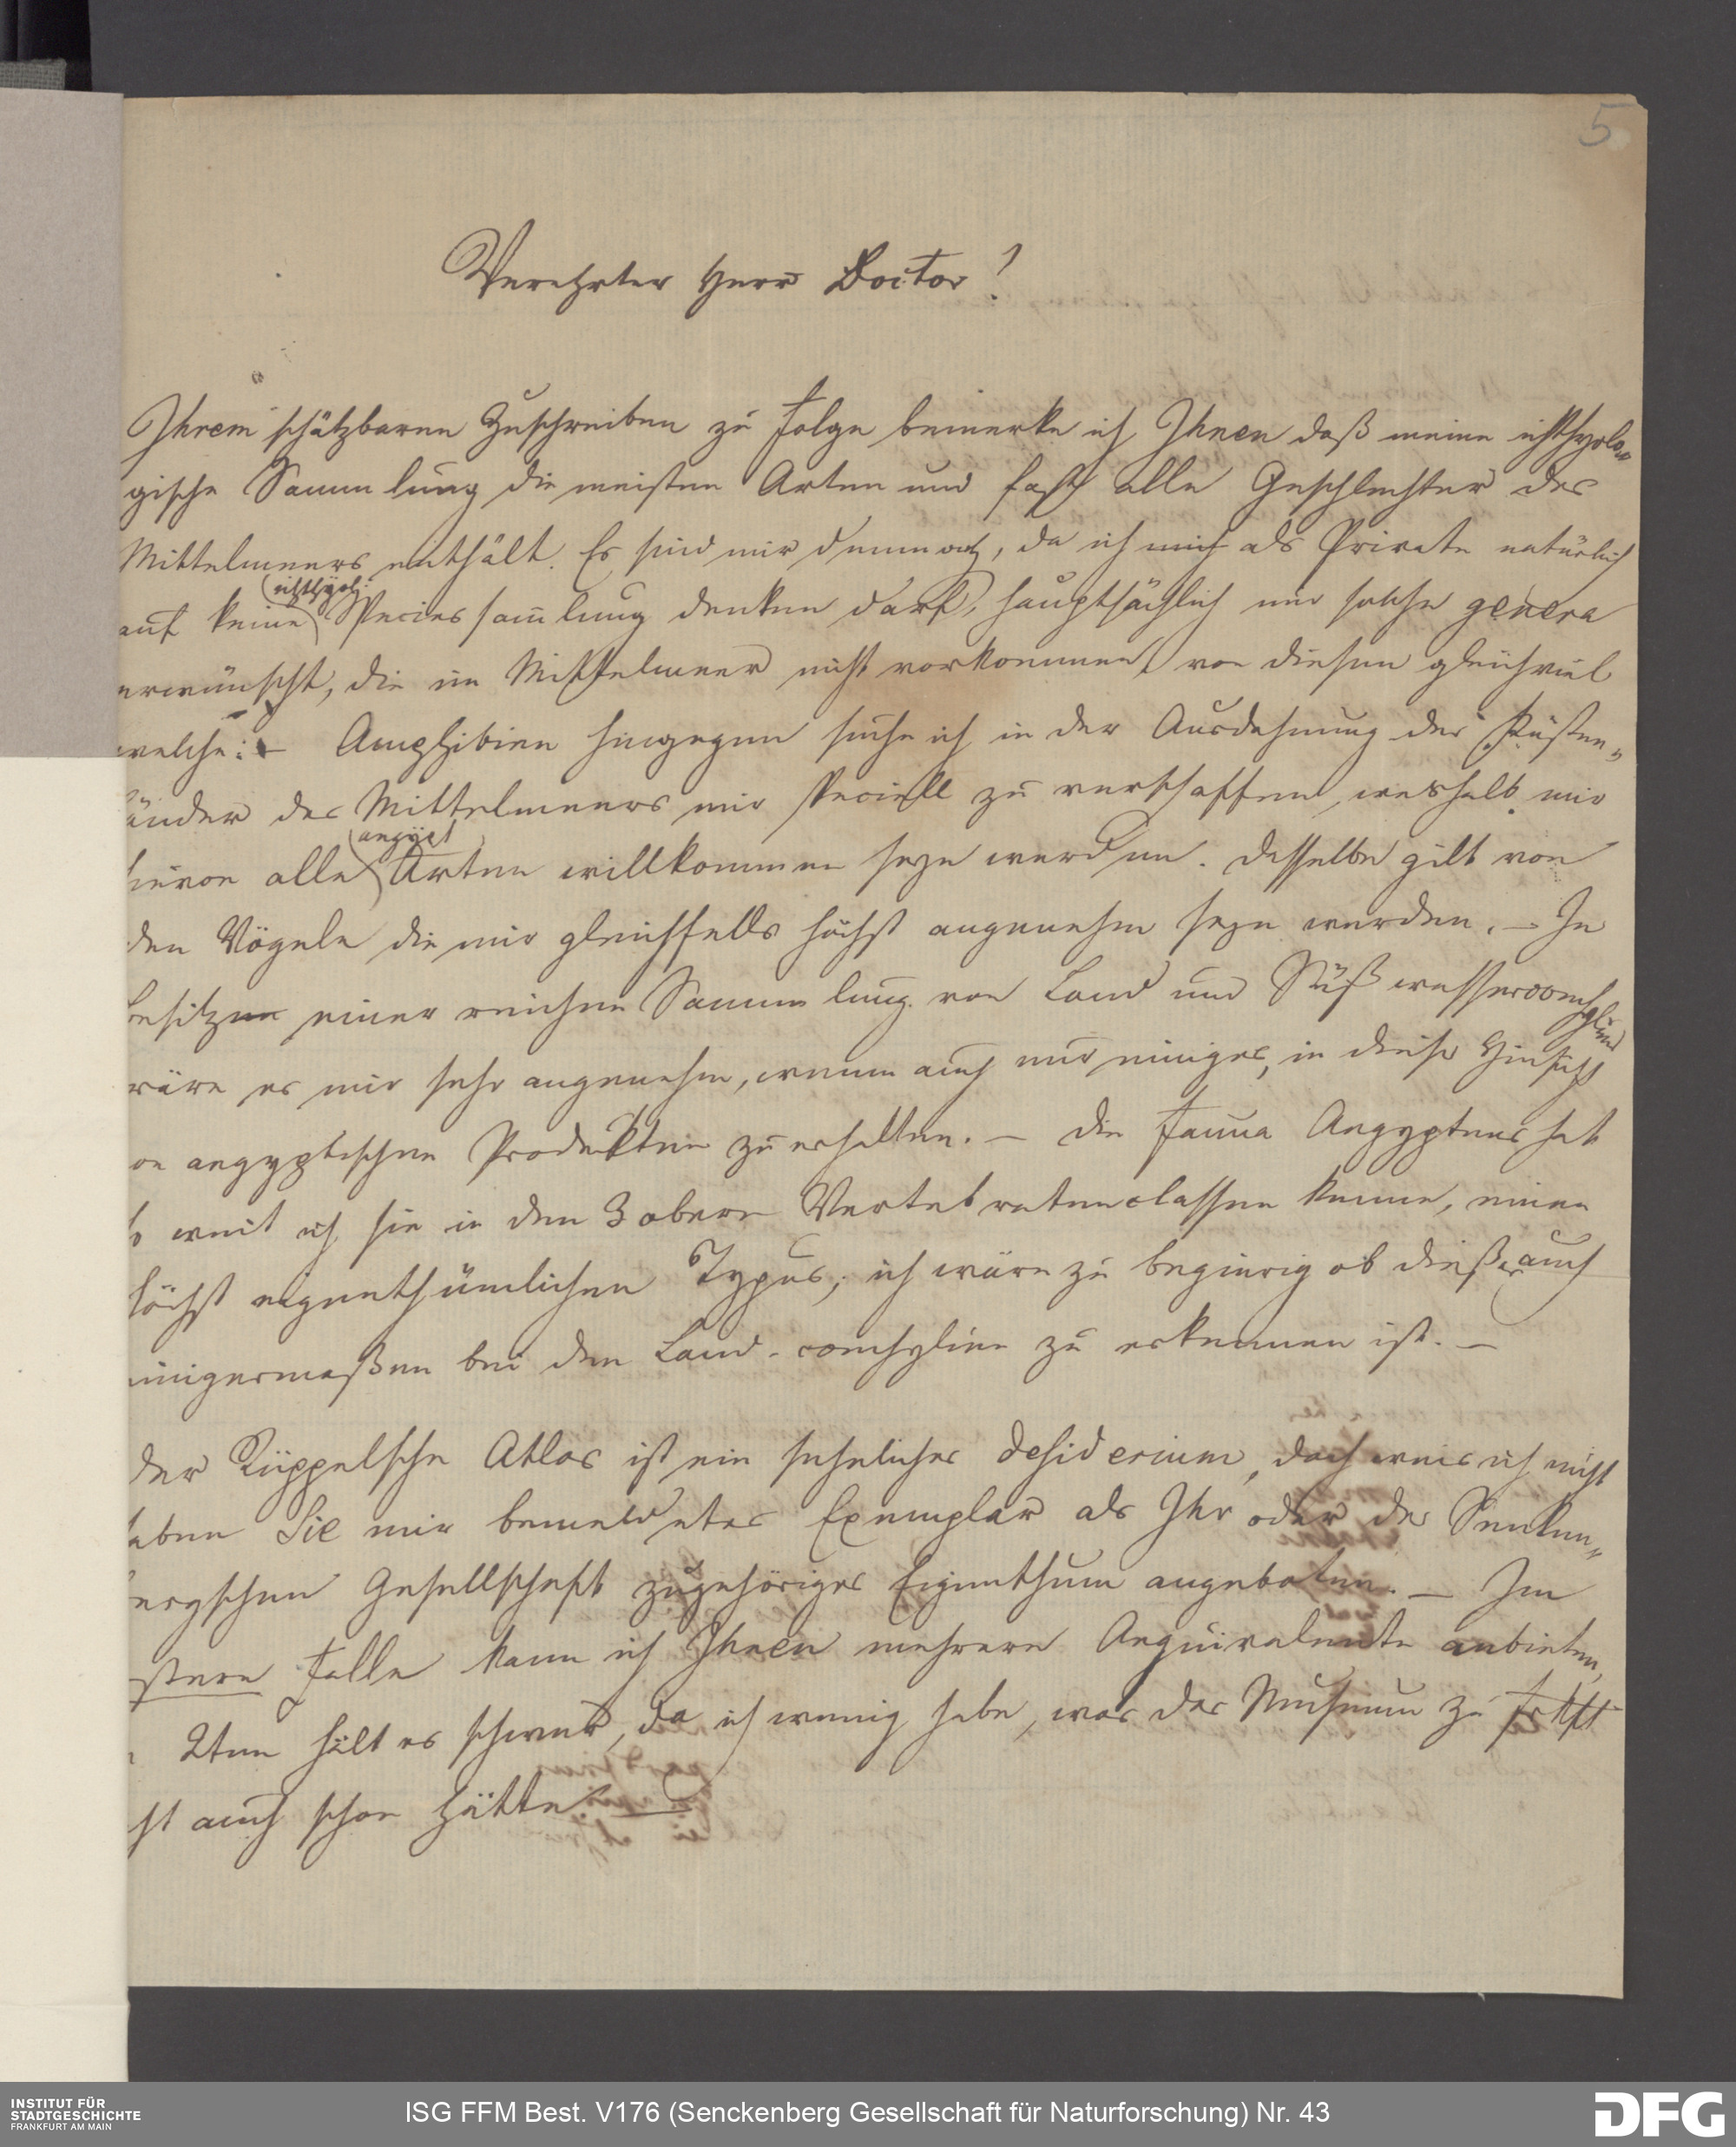 5
Verehrter Herr Doctor!
Ihrem schätzbaren Zuschreiben zu Folge bemerke ich Ihnen daß meine ichthyolo„
gische Sammlung die meisten Arten und fast alle Geschlechter des
Mittelmeers enthält. Es sind mir demnach, da ich mich als Private natürlich
(ichthyol:
auf keine Speciessam̅lung denken darf, hauptsächlich nur solche genera
erwünscht, die im Mittelmeer nicht vorkommen, von diesen gleichviel
welche: – Amphibien hingegen suche ich in der Ausdehnung der Küsten„
länder des Mittelmeers mir speciell zu verschaffen, weshalb mir
(aegypt
hievon alle Arten willkommen seyn werden. Dasselbe gilt von
den Vögeln die mir gleichfalls höchst angenehm seyn werden. – In
Besitze einer reichen Sammlung von Land und Süßwasserconchylien
wäre es mir sehr angenehm, wenn auch nur einiges, in dieser Hinsicht
von aegyptischen Produkten zu erhalten. – Die Fauna Aegyptens hat
so weit ich sie in den 3 obern Vertebratenclassen kenne, einen
höchst eigenthümlichen Typus; ich wäre zu begierig ob dießer auch
einigermaßen bei den Land-conchylien zu erkennen ist. –
Der Rüppelsche Atlas ist ein sehnliches desiderium, doch weis ich nicht
haben Sie mir bemeldetes Exemplar als Ihr oder der Senken„
bergschen Gesellschaft zugehöriges Eigenthum angeboten. – Im
erstern Falle kann ich Ihnen mehrere Aequivalente anbieten,
im 2ten hält es schwer, da ich wenig habe, was das Museum zu
nicht auch schon hätte. –
INSTITUT FÜR
STADTGESCHICHTE
FRANKFURT AM MAIN
ISG FFM Best. V176 (Senckenberg Gesellschaft für Naturforschung) Nr. 43
DFG